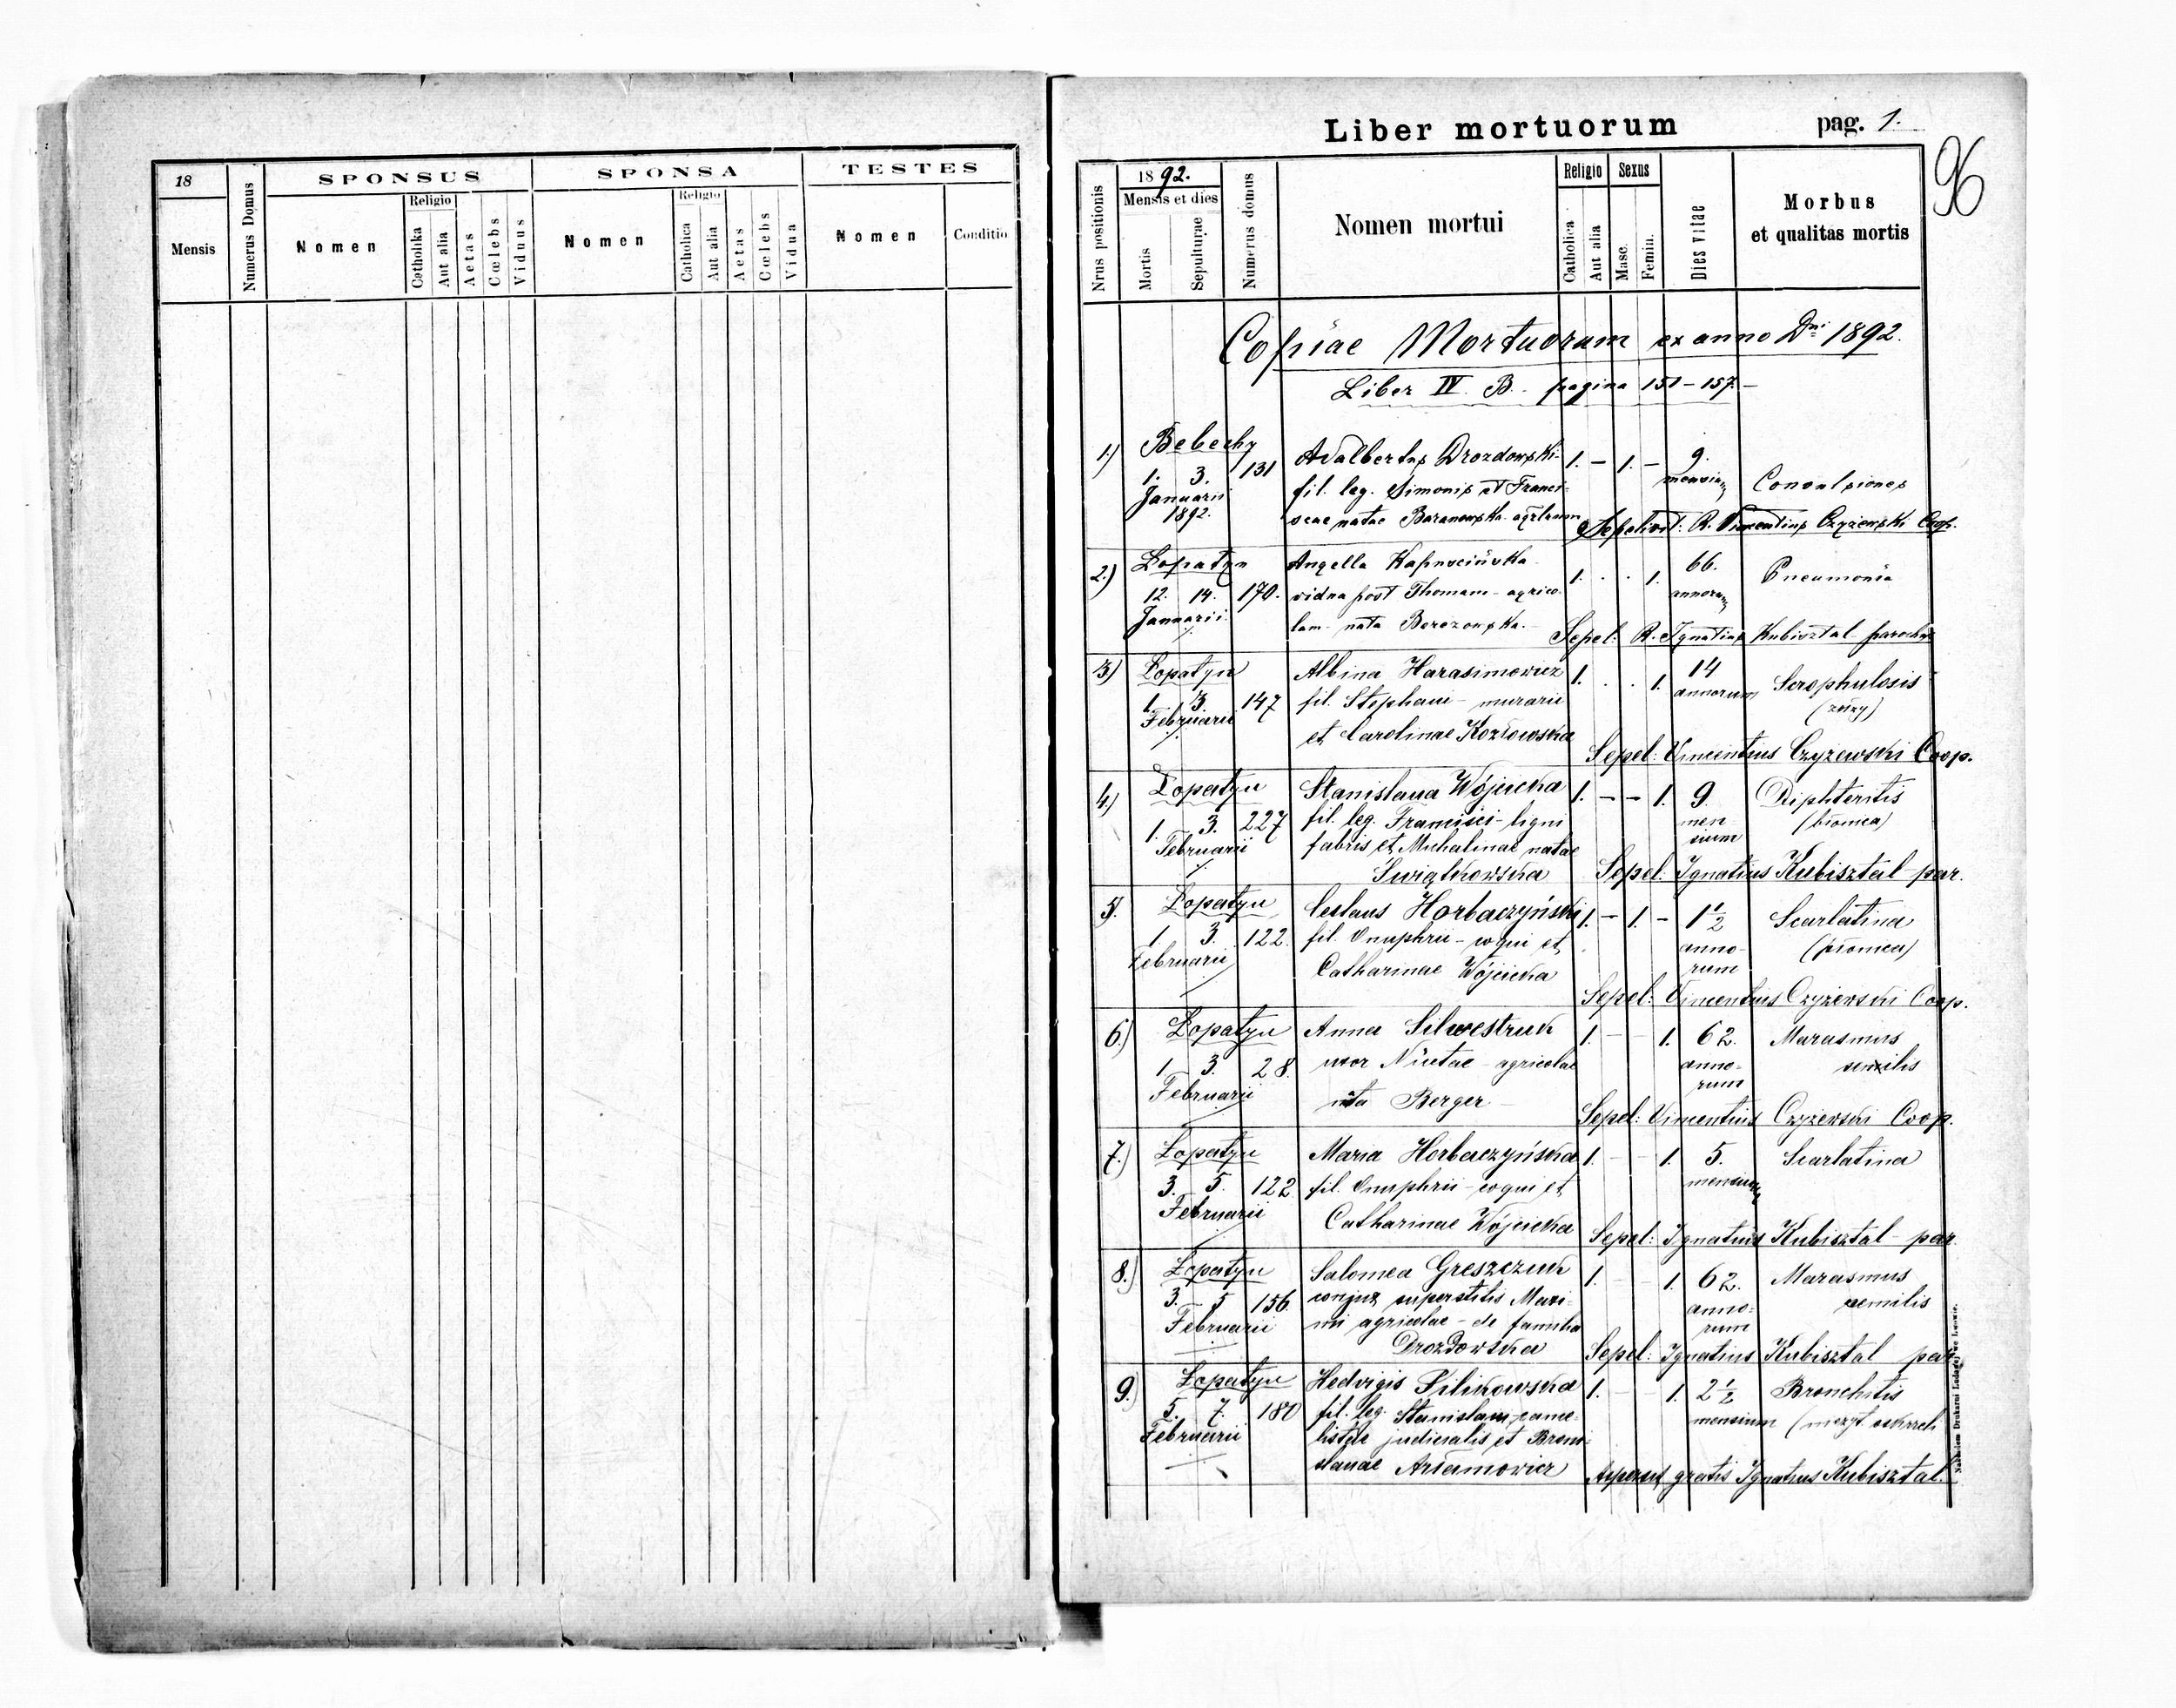 18
Mensis
Numerus Domus
SPONSUS
Nomen
Religio
Catholika
Aut alia
Aetas
Cœlebs
Viduus
SPONSA
Nomen
Religio
Catholica
Aut alia
Aetas
Cœlebs
Vidua
TESTES
Nomen
Conditio
Liber mortuorum
pag. 1.
96
Nrus positionis
1892.
Mensis et dies
Mortis
Sepulturae
Numerus domus
Nomen mortui
Religio
Catholica
Aut alia
Sexus
Masc.
Femin.
Dies vitae
Morbus
et qualitas mortis
Copiae Mortuorum ex anno Dni 1892.
Liber IV. B. pagina 151-157.-
1.) Bebechy Adalbertus Drozdowski- 1. - 1. - 9.
1. 3. 131 fil. leg. Simonis et Franci- mensium Convulsiones
Januarii
1892. scae natae Baranowska
Sepelivit: R. Vincentius Czyżewski Coop.
2.) Lopatyn Angella Kapuscińska 1. . . 1. 66. Pneumonia
12. 14. 170. vidua post Thomam - agrico- annorum
Januarii lam - nata Berezowska.-
Sepel: R. Ignatius Kubisztal parochus
3.) Łopatyn Albina Harasimowicz 1. . . 1. 14 Scrophulosis
1. 3. 147 fil. Stephani - murarii annorum
Februarii et Carolinae Kozłowska
Sepel: Vincentius Czyżewski Coop.
4.) Łopatyn Stanislaua Wójcicka 1. - - 1. 9. Diphteritis
1. 3. 227 fil. leg. Francisci - ligni men (błonica)
Februarii fabris et Michalinae natae sium
Świątkowska
Sepel: Ignatius Kubisztal par.
5. Łopatyn Ceslaus Horbaczyński 1. - 1. - 1 1/2 Scarlatina
1 3. 122. fil. Onuphrii - coqui et anno- (płonica)
Februarii Catharinae Wójcicka rum
Sepel: Vincentius Czyżewski Coop.
6.) Łopatyn Anna Silwestruk 1. - - 1. 62. Marasmus
1 3. 28. uxor Nicetae - agricolae anno- senilis
Februarii nata Berger rum
Sepel: Vincentius Czyżewski Coop.
7.) Łopatyn Maria Horbaczyńska 1. - - 1. 5. Scarlatina
3. 5. 122 fil. Onuphrii - coqui et mensium
Februarii Catharinae Wójcicka
Sepel: Ignatius Kubisztal - par
8.) Łopatyn Salomea Greszczuk 1. - - 1. 62. Marasmus
3. 5 156 conjux superstitis Maxi- anno- senilis
Februarii mi agricolae - de familia rum
Drozdowska
Sepel: Ignatius Kubisztal par
9.) Łopatyn Hedvigis Pilikowska 1. - - 1. 2 1/2 Bronchitis
5. 7. 180 fil. leg. Stanislai cance- mensium
Februarii listae judicialis et Broni-
slauae Artamowicz
Aspersit gratis Ignatius Kubisztal.